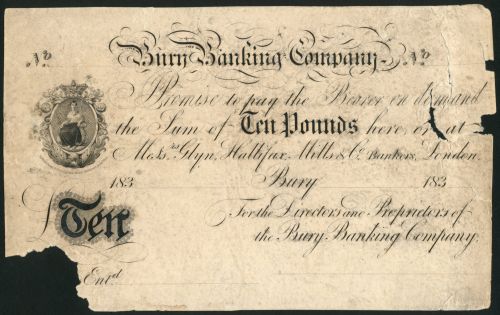 No. Bury Banking Company. No.
I Promise to pay the Bearer on demand
the Sum of Ten Pounds here, or at
Messrs. Glyn, Hallifax, Mills & Co. Bankers, London.
183 Bury 183
£Ten For the Directors and Proprietors of
the Bury Banking Company.
Entd.